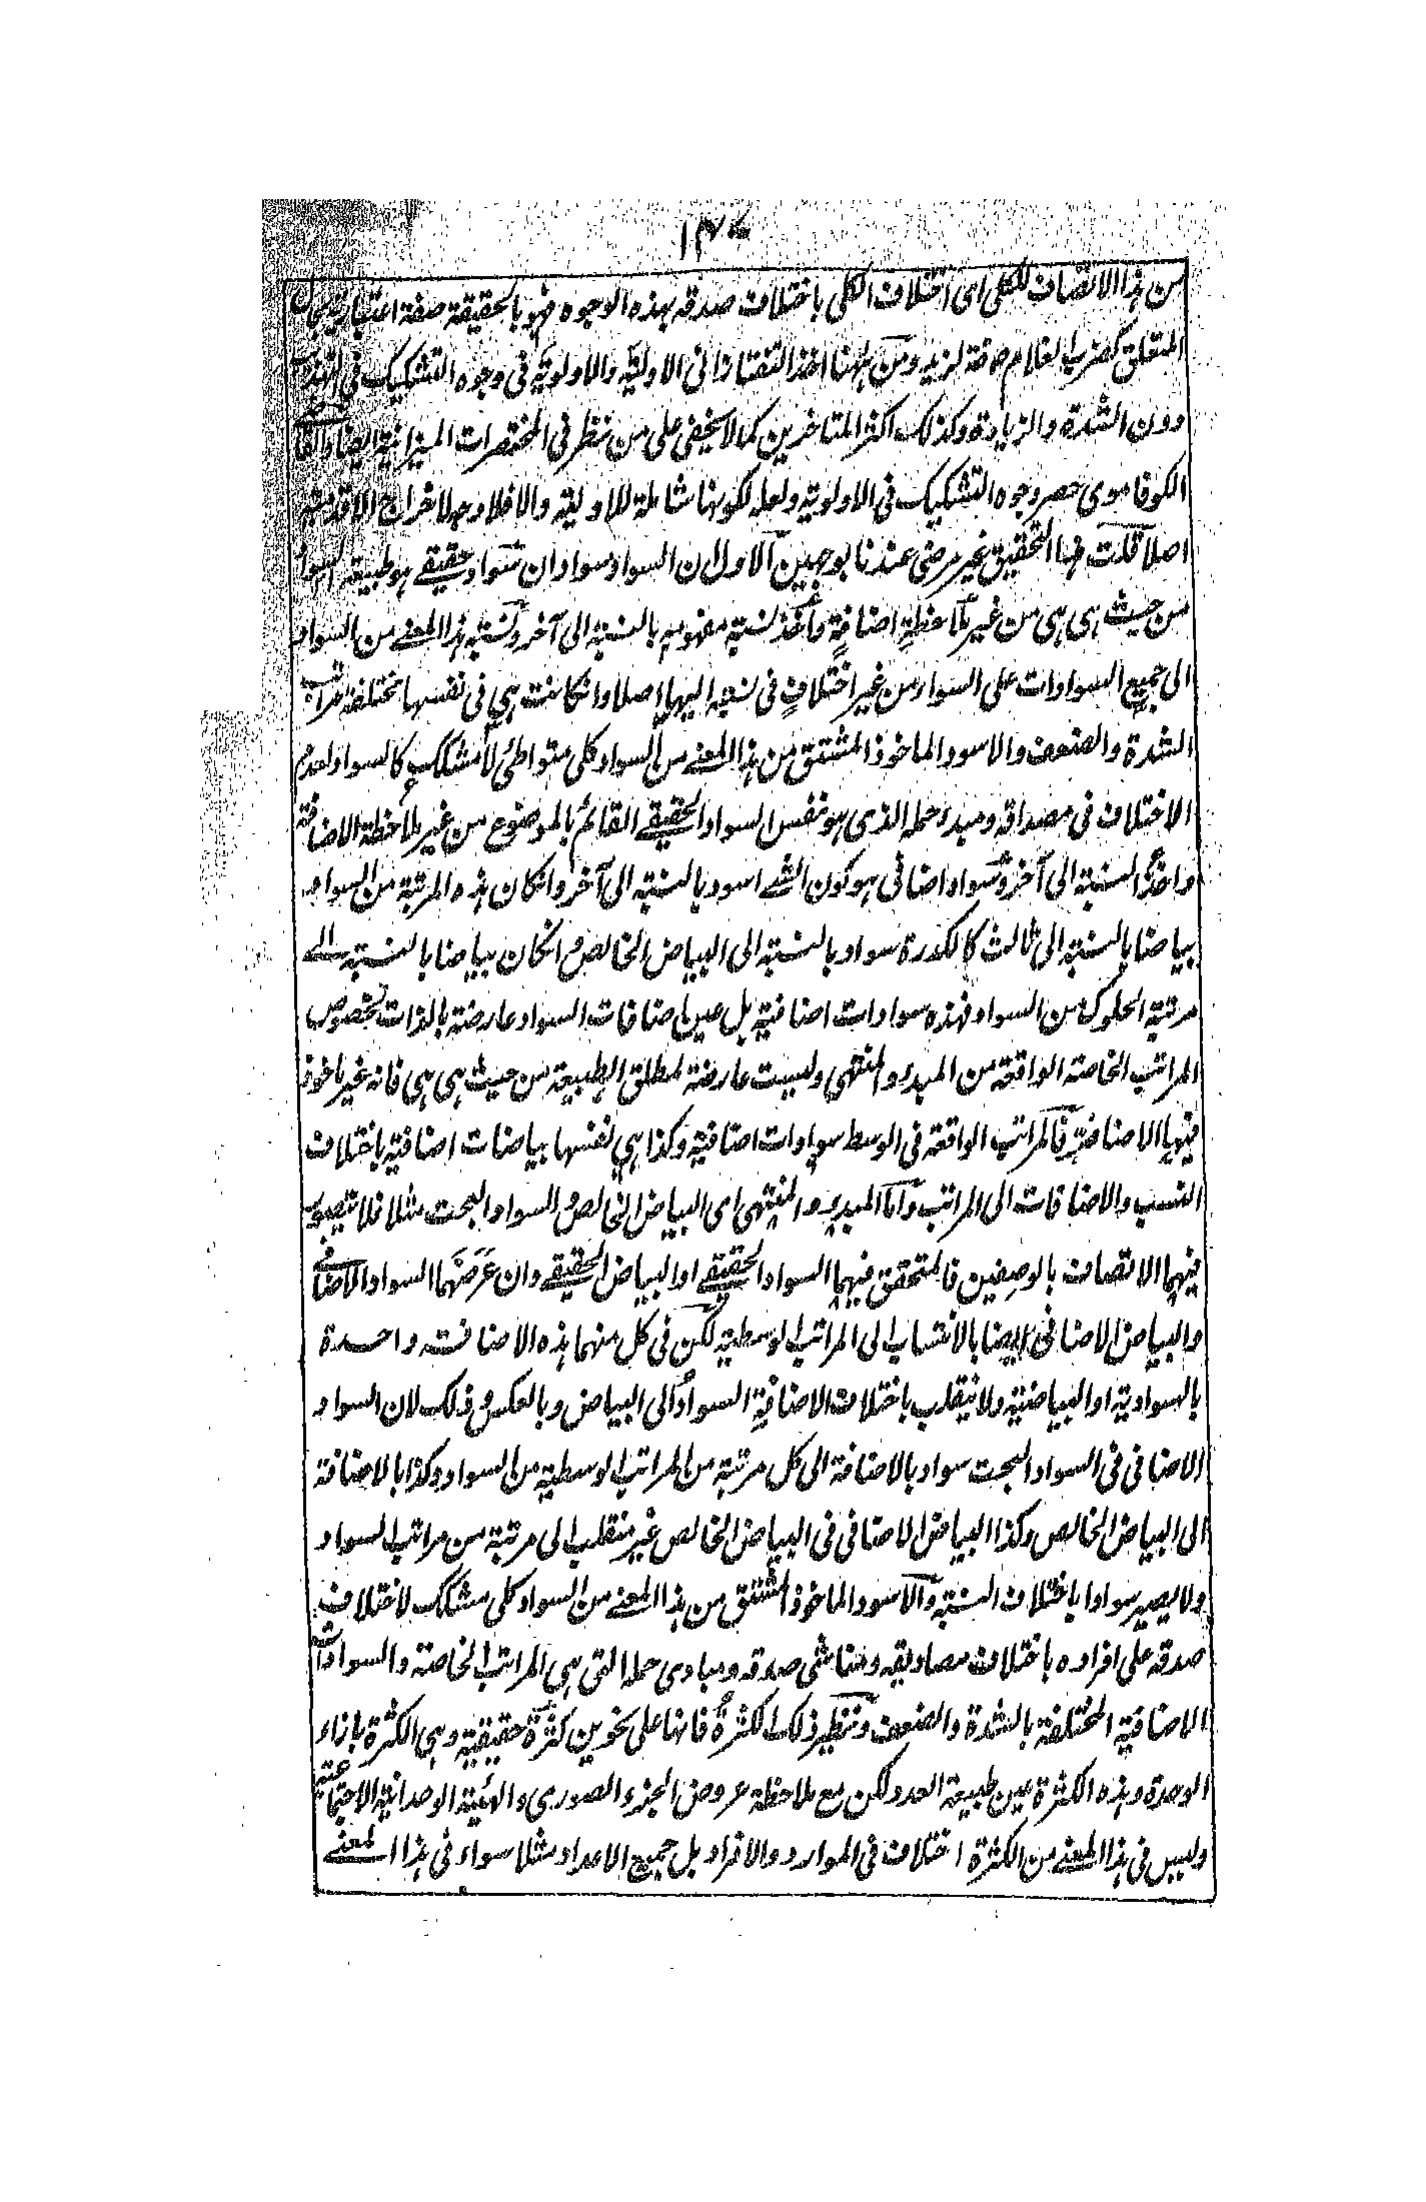 ١٣٧
من هذا الاتصاف للكلى اى اختلاف الكلى باختلاف صدقه بهذه الوجوه فهو بالحقيقة صفة اعتبارية بحال
المتعلق كضرب الغلام صفة لزيد ومن ههنا اخذ التفتازانى الاولية والاولوية فى وجوه التشكيك فى التهذيب
دون الشدة والزيادة وكذلك اكثر المتاخرين كما لا يخفى على من نظر فى المختصرات الميزانية ايضا
الكوفاموى حصر وجوه التشكيك فى الاولوية ولعله لكونها شاملة للاولية والا فلا وجه لاخراج الاقدمية
اصلا قلت هذا التحقيق غير مرضى عندنا بوجهين الاول ان السواد سوادان سواد حقيقے هو طبيعة السواد
من حيث هى هى من غير ملاحظة اضافة واخذ نسبة مفهومه بالنسبة الى آخر ونسبة هذا المعنے من السواد
الى جميع السوادات على السواء من غير اختلاف فى نسبته اليها اصلا وانكانت هى فى نفسها مختلفة مراتب
الشدة والضعف والاسود الماخوذ المشتق من هذا المعنے من السواد كلى متواطئ لا مشكك كالسواد لعدم
الاختلاف فى مصداقه ومبدء حمله الذى هو نفس السواد الحقيقے القائم بالموضوع من غير ملاحظة الاضافة
واخذ النسبة الى آخر وسواد اضافى هو كون الشے اسود بالنسبة الى آخر وانكان هذه المرتبة من السواد
بياضا بالنسبة الى ثالث كالكدرة سواد بالنسبة الى البياض الخالص وانكان بياضا بالنسبة الے
مرتبة الحلوكة من السواد فهذه سوادات اضافية بل عين اضافات السواد عارضة بالذات لخصوص
المراتب الخاصة الواقعة من المبدء والمنتهى وليست عارضة لمطلق الطبيعة من حيث هى هى فانه غير ماخوذ
فيها الاضافة فالمراتب الواقعة فى الوسط سوادات اضافية وكذا هى نفسها بياضات اضافية باختلاف
النسب والاضافات الى المراتب واما المبدء والمنتهى اى البياض الخالص والسواد البحت مثلا فلا يتصور
فيهما الاتصاف بالوصفين فالمتحقق فيهما السواد الحقيقے او البياض الحقيقے وان عرضهما السواد الاضافے
والبياض الاضافى ايضا بالانتساب الى المراتب الوسطية لكن فى كل منهما هذه الاضافة واحدة
بالسوادية او البياضية ولا ينقلب باختلاف الاضافة السواد الى البياض وبالعكس وذلك لان السواد
الاضافى فى السواد البحت سواد بالاضافة الى كل مرتبة من المراتب الوسطية من السواد وكذا بالاضافة
الى البياض الخالص وكذا البياض الاضافى فى البياض الخالص غير منقلب الى مرتبة من مراتب السواد
ولا يصير سوادا باختلاف النسبة والاسود الماخوذ المشتق من هذا المعنے من السواد كلى مشكك لاختلاف
صدقه على افراده باختلاف مصاديقه ومناشى صدقه ومبادى حمله التى هى المراتب الخاصة والسوادات
الاضافية المختلفة بالشدة والضعف ونظير ذلك الكثرة فانها على نحوين كثرة حقيقية وهى الكثرة بازاء
الوحدة وهذه الكثرة عين طبيعة العدد لكن مع ملاحظة عروض الجزء الصورى والهيئة الوحدانية الاجتماعية
وليس فى هذا المعنے من الكثرة اختلاف فى الموارد والافراد بل جميع الاعداد مثلا سواء فى هذا المعنے